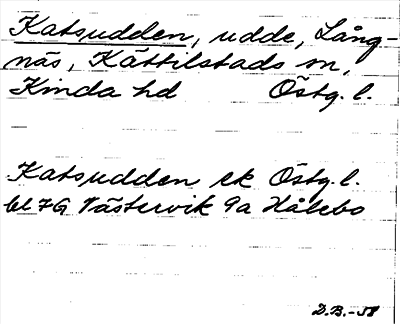 Katsudden, udde, Lång-
näs, Kättilstads sn,
Kinda hd Östg. l.
Katsudden ek Östg. l.
bl 7G Västervik 9a Hålebo
D.B.-58